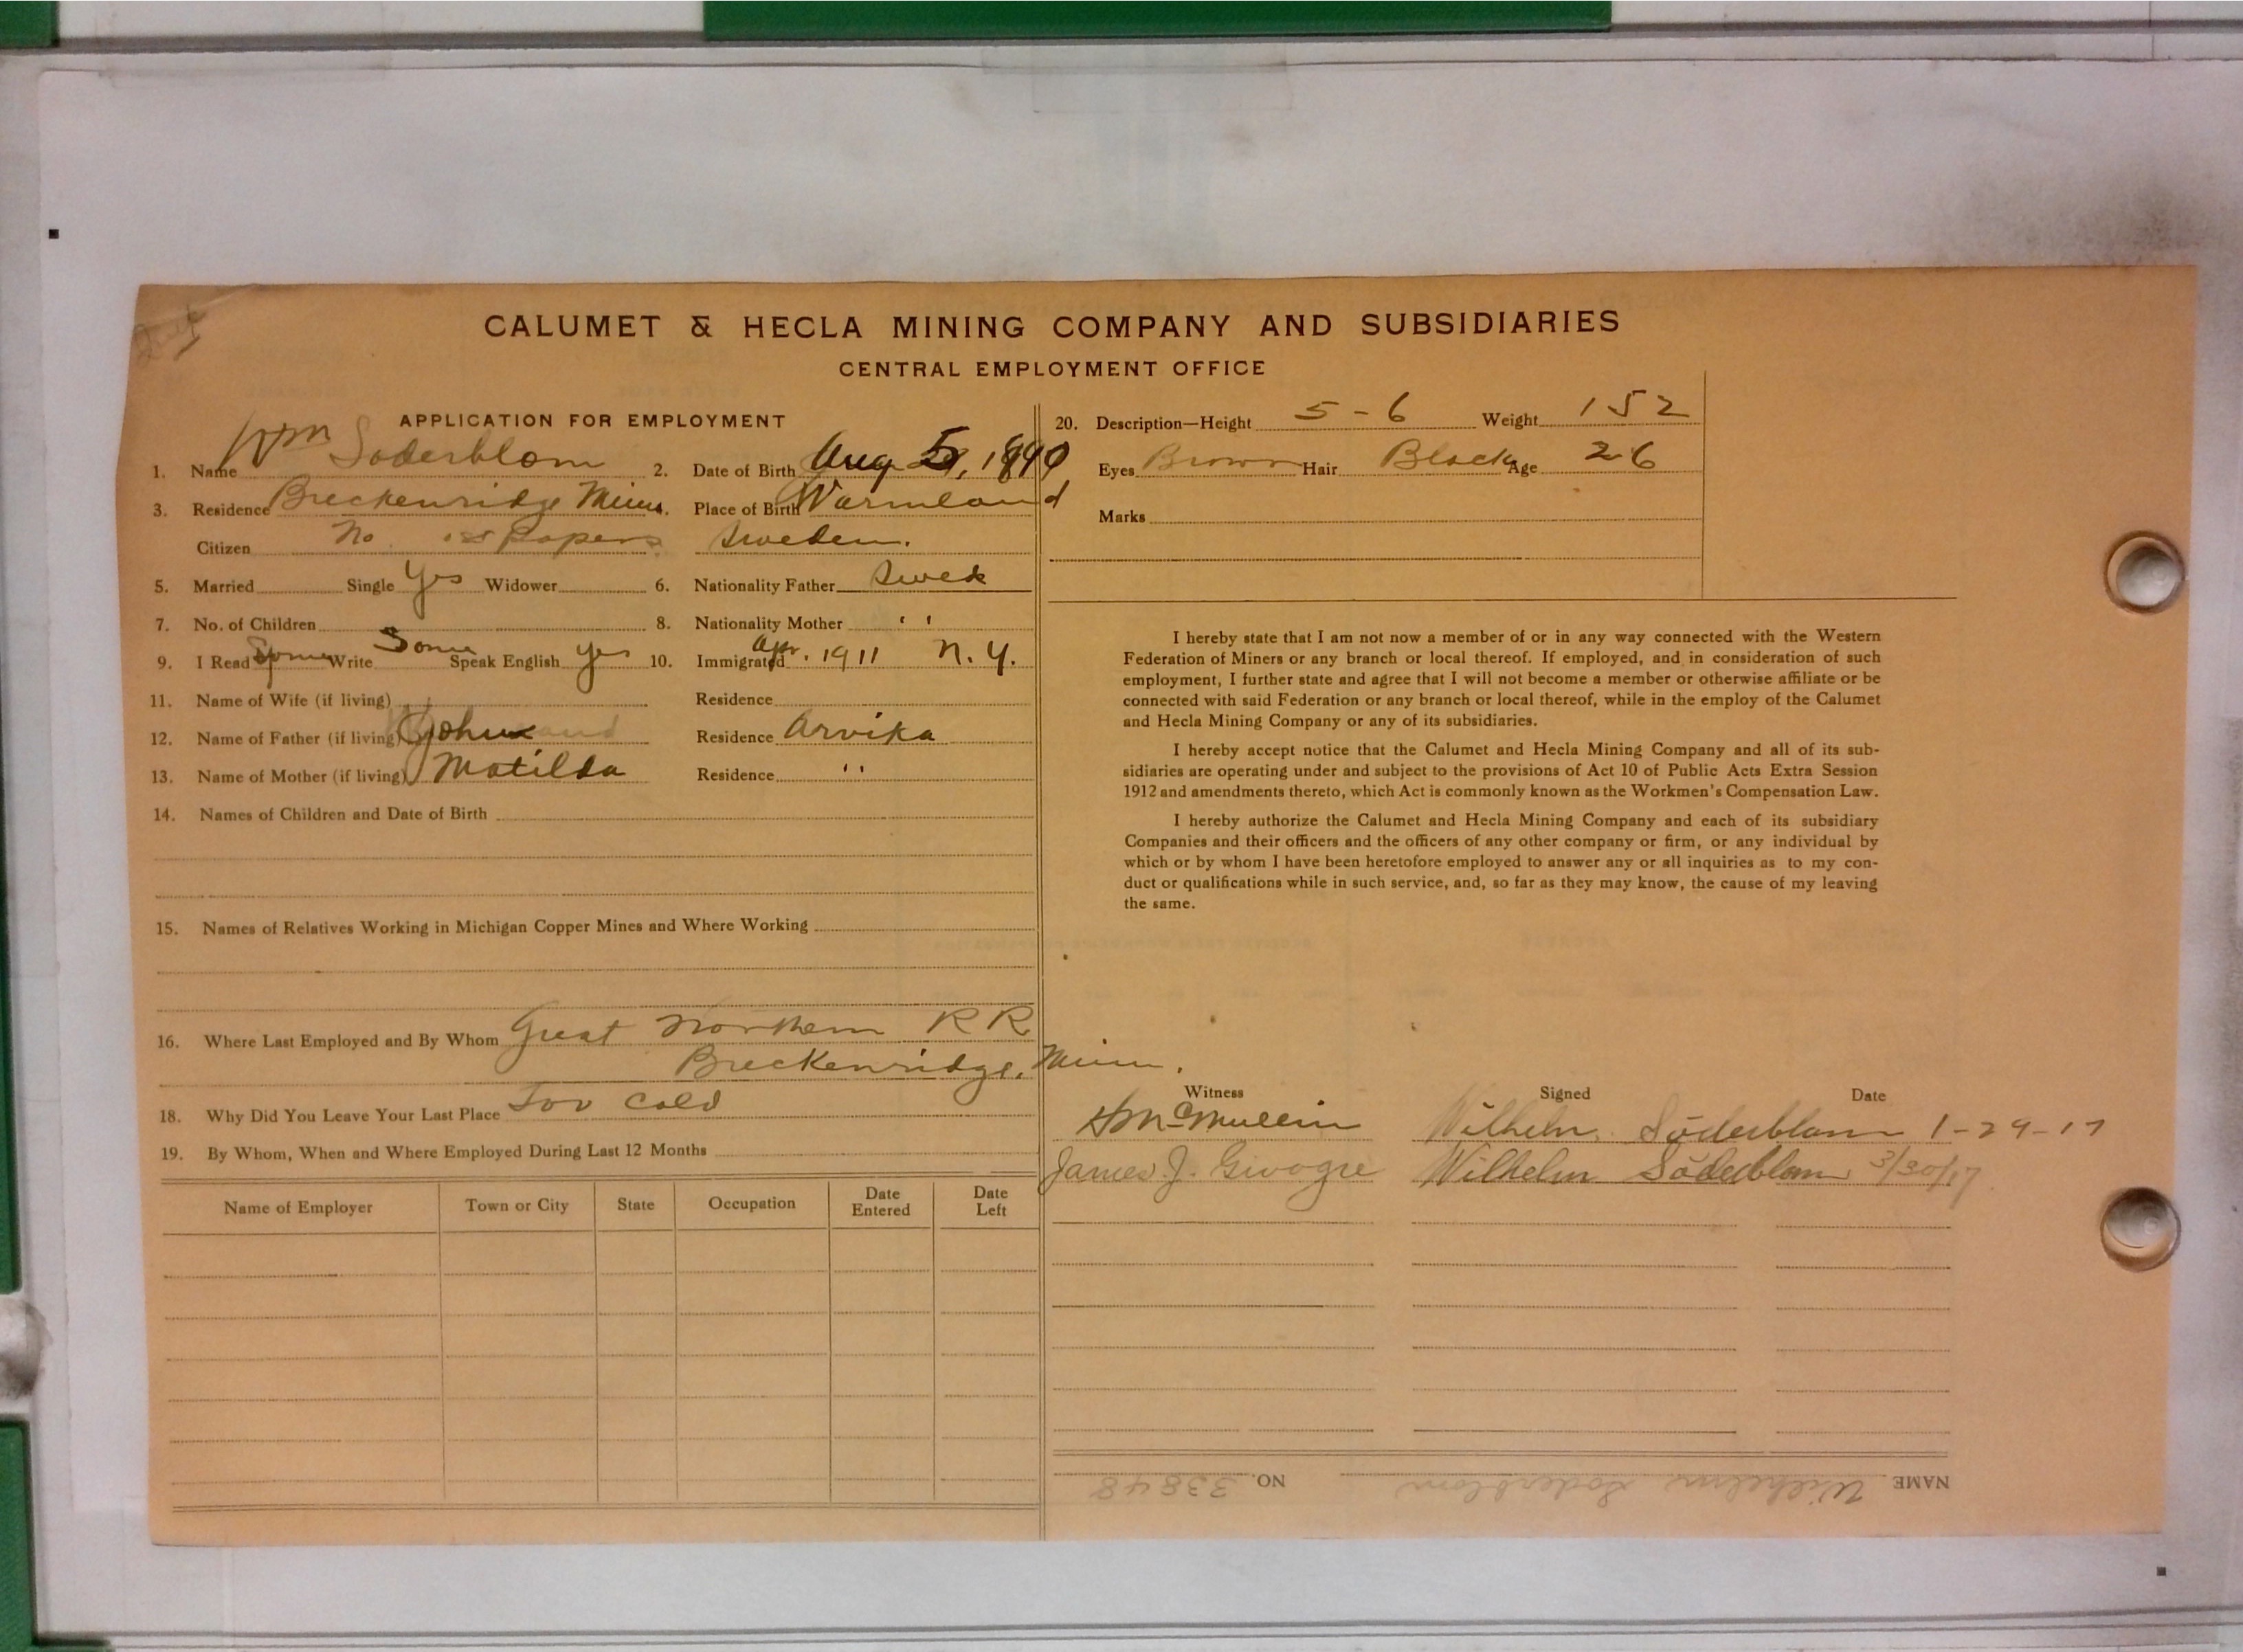 CALUMET & HECLA MINING COMPANY AND SUBSIDIARIES
CENTRAL EMPLOYMENT OFFICE
APPLICATION FOR EMPLOYMENT
1. Name Wm Soderblom 2. Date of Birth Aug 5, 1890
3. Residence Breckenridge Minn. 4. Place of Birth Warmland
Citizen No 1st Papers Sweden.
5. Married Single Yes Widower 6. Nationality Father Swede
7. No. of Children 8. Nationality Mother " 
9. I Read Some Write Some Speak English yes 10. Immigrated Apr. 1911 N.Y.
11. Name of Wife (if living) Residence
12. Name of Father (if living) John Residence Arvika
13. Name of Mother (if living) Matilda Residence "
14. Names of Children and Date of Birth
15. Names of Relatives Working in Michigan Copper Mines and Where Working
16. Where Last Employed and By Whom Great Northern R R
Breckenridge, Minn.
18. Why Did You Leave Your Last Place Too Cold
19. By Whom, When and Where Employed During Last 12 Months
Name of Employer Town or City State Occupation Date Entered Date Left
20. Description—Height 5-6 Weight 152
Eyes Brown Hair Black Age 26
Marks
I hereby state that I am not now a member of or in any way connected with the Western
Federation of Miners or any branch or local thereof. If employed, and in consideration of such
employment, I further state and agree that I will not become a member or otherwise affiliate or be
connected with said Federation or any branch or local thereof, while in the employ of the Calumet
and Hecla Mining Company or any of its subsidiaries.
I hereby accept notice that the Calumet and Hecla Mining Company and all of its sub-
sidiaries are operating under and subject to the provisions of Act 10 of Public Acts Extra Session
1912 and amendments thereto, which Act is commonly known as the Workmen's Compensation Law.
I hereby authorize the Calumet and Hecla Mining Company and each of its subsidiary
Companies and their officers and the officers of any other company or firm, or any individual by
which or by whom I have been heretofore employed to answer any or all inquiries as to my con-
duct or qualifications while in such service, and, so far as they may know, the cause of my leaving
the same.
Witness Signed Date
McMullin Wilhelm Söderblom 1-29-17
James J. Wilhelm Söderblom 3/30/17
NAME Wilhelm Soderblom NO. 33848